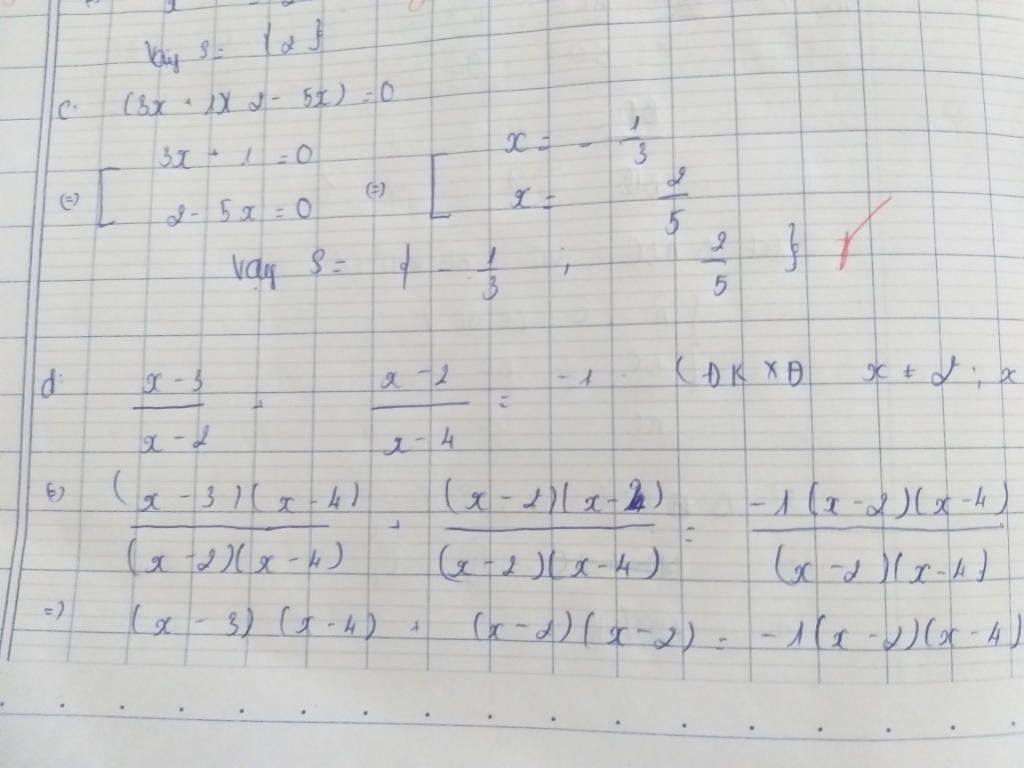 Vậy S = { 2 }
c. (3x + 1)(2 - 5x) = 0
(=) [ 3x + 1 = 0 (=) [ x = - 1/3
2 - 5x = 0 x = 2/5
Vậy S = { - 1/3 ; 2/5 }
d. (x - 3)/(x - 2) + (x - 2)/(x - 4) = -1 (ĐKXĐ x ≠ 2 ; x
(=) (x - 3)(x - 4)/(x - 2)(x - 4) + (x - 2)(x - 2)/(x - 2)(x - 4) = -1(x - 2)(x - 4)/(x - 2)(x - 4)
=) (x - 3)(x - 4) + (x - 2)(x - 2) = -1(x - 2)(x - 4)